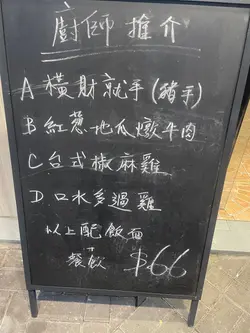 廚師推介
A 橫財就手(豬手)
B 紅葱地瓜燉牛肉
C 台式椒麻雞
D 口水多過雞
以上配飯面
餐飲 $66